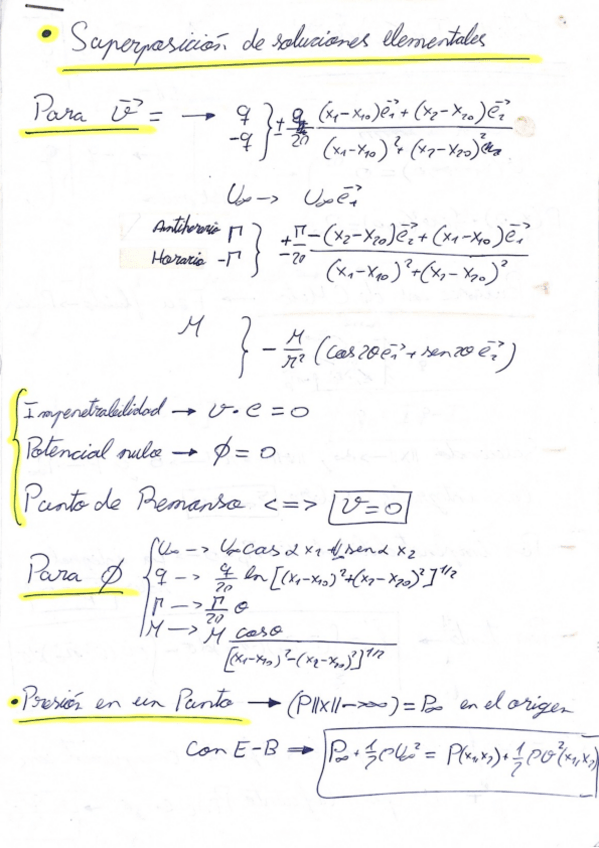 • Superposición de soluciones elementales
Para v⃗ = → q -q } ± q/2π (x₁-x₁₀)e⃗₁+(x₂-x₂₀)e⃗₂ / (x₁-x₁₀)²+(x₂-x₂₀)²
U∞ → U∞e⃗₁
Antihorario Γ Horario -Γ } ± Γ/2π -(x₂-x₂₀)e⃗₂+(x₁-x₁₀)e⃗₁ / (x₁-x₁₀)²+(x₂-x₂₀)²
M } - M/r² (cos2θe⃗₁+sen2θe⃗₂)
Impenetrabilidad → v·e=0
Potencial nulo → ϕ=0
Punto de Remanso <=> v=0
Para ϕ { U∞ → U∞cosα x₁+U∞senα x₂
q → q/2π ln[(x₁-x₁₀)²+(x₂-x₂₀)²]^1/2
Γ → Γ/2π θ
M → M cosθ / [(x₁-x₁₀)²-(x₂-x₂₀)²]^1/2
• Presión en un Punto → (P‖x‖→∞)=P∞ en el origen
con E-B ⇒ P∞+½ρU∞²=P(x₁,x₂)+½ρv²(x₁,x₂)